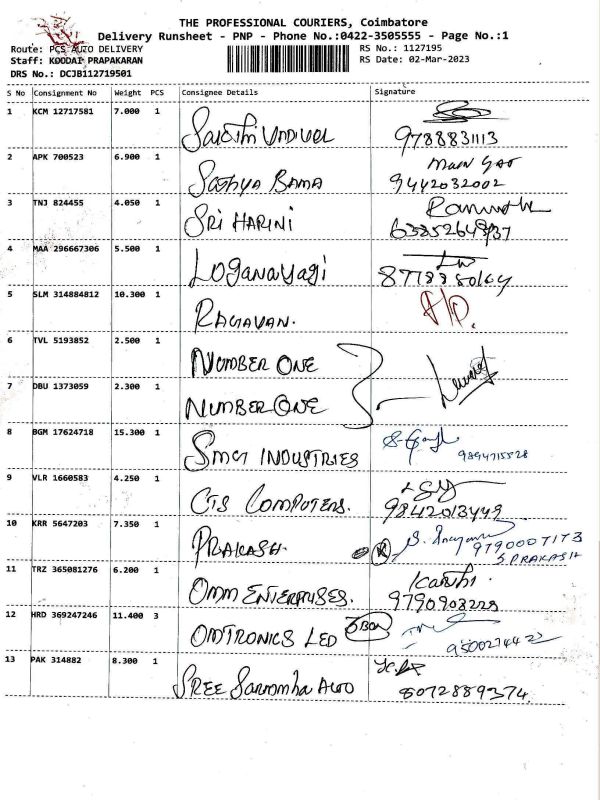 THE PROFESSIONAL COURIERS, Coimbatore
Delivery Runsheet - PNP - Phone No.:0422-3505555 - Page No.:1
Route: PCS AUTO DELIVERY RS No.: 1127195
Staff: KOODAI PRAPAKARAN RS Date: 02-Mar-2023
DRS No.: DCJB112719501
S No Consignment No Weight PCS Consignee Details Signature
1 KCM 12717581 7.000 1 Sakthi Vadivel
9788831113
2 APK 700523 6.900 1 Sathya Bama
9442032002
3 TNJ 824455 4.050 1 SRI HARINI
4 MAA 296667306 5.500 1 Loganayagi
5 SLM 314884812 10.300 1 RAGAVAN.
6 TVL 5193852 2.500 1 NUMBER ONE
7 DBU 1373059 2.300 1 NUMBER ONE
8 BGM 17624718 15.300 1 INDUSTRIES
9894715528
9 VLR 1660583 4.250 1 CTS COMPUTERS.
9842013449
10 KRR 5647203 7.350 1 PRAKASH.
9790007173
S PRAKASH
11 TRZ 365081276 6.200 1 OMM ENTERPRISES. Karthi.
9790903228
12 HRD 369247246 11.400 3 OMTRONICS LED 3 BOX
9500274422
13 PAK 314882 8.300 1 SREE Auto
8072889374